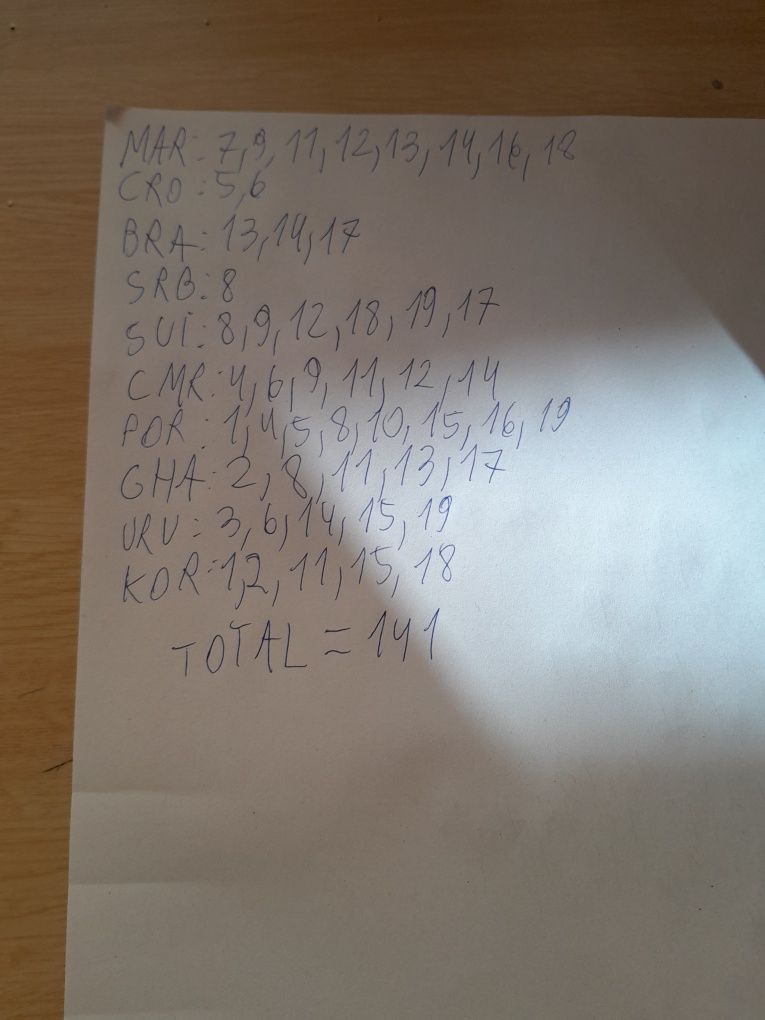 MAR: 7,9,11,12,13,14,16,18
CRO: 5,6
BRA: 13,14,17
SRB: 8
SUI: 8,9,12,18,19,17
CMR: 4,6,9,11,12,14
POR: 1,4,5,8,10,15,16,19
GHA: 2,8,11,13,17
URU: 3,6,14,15,19
KOR: 1,2,11,15,18
TOTAL = 141